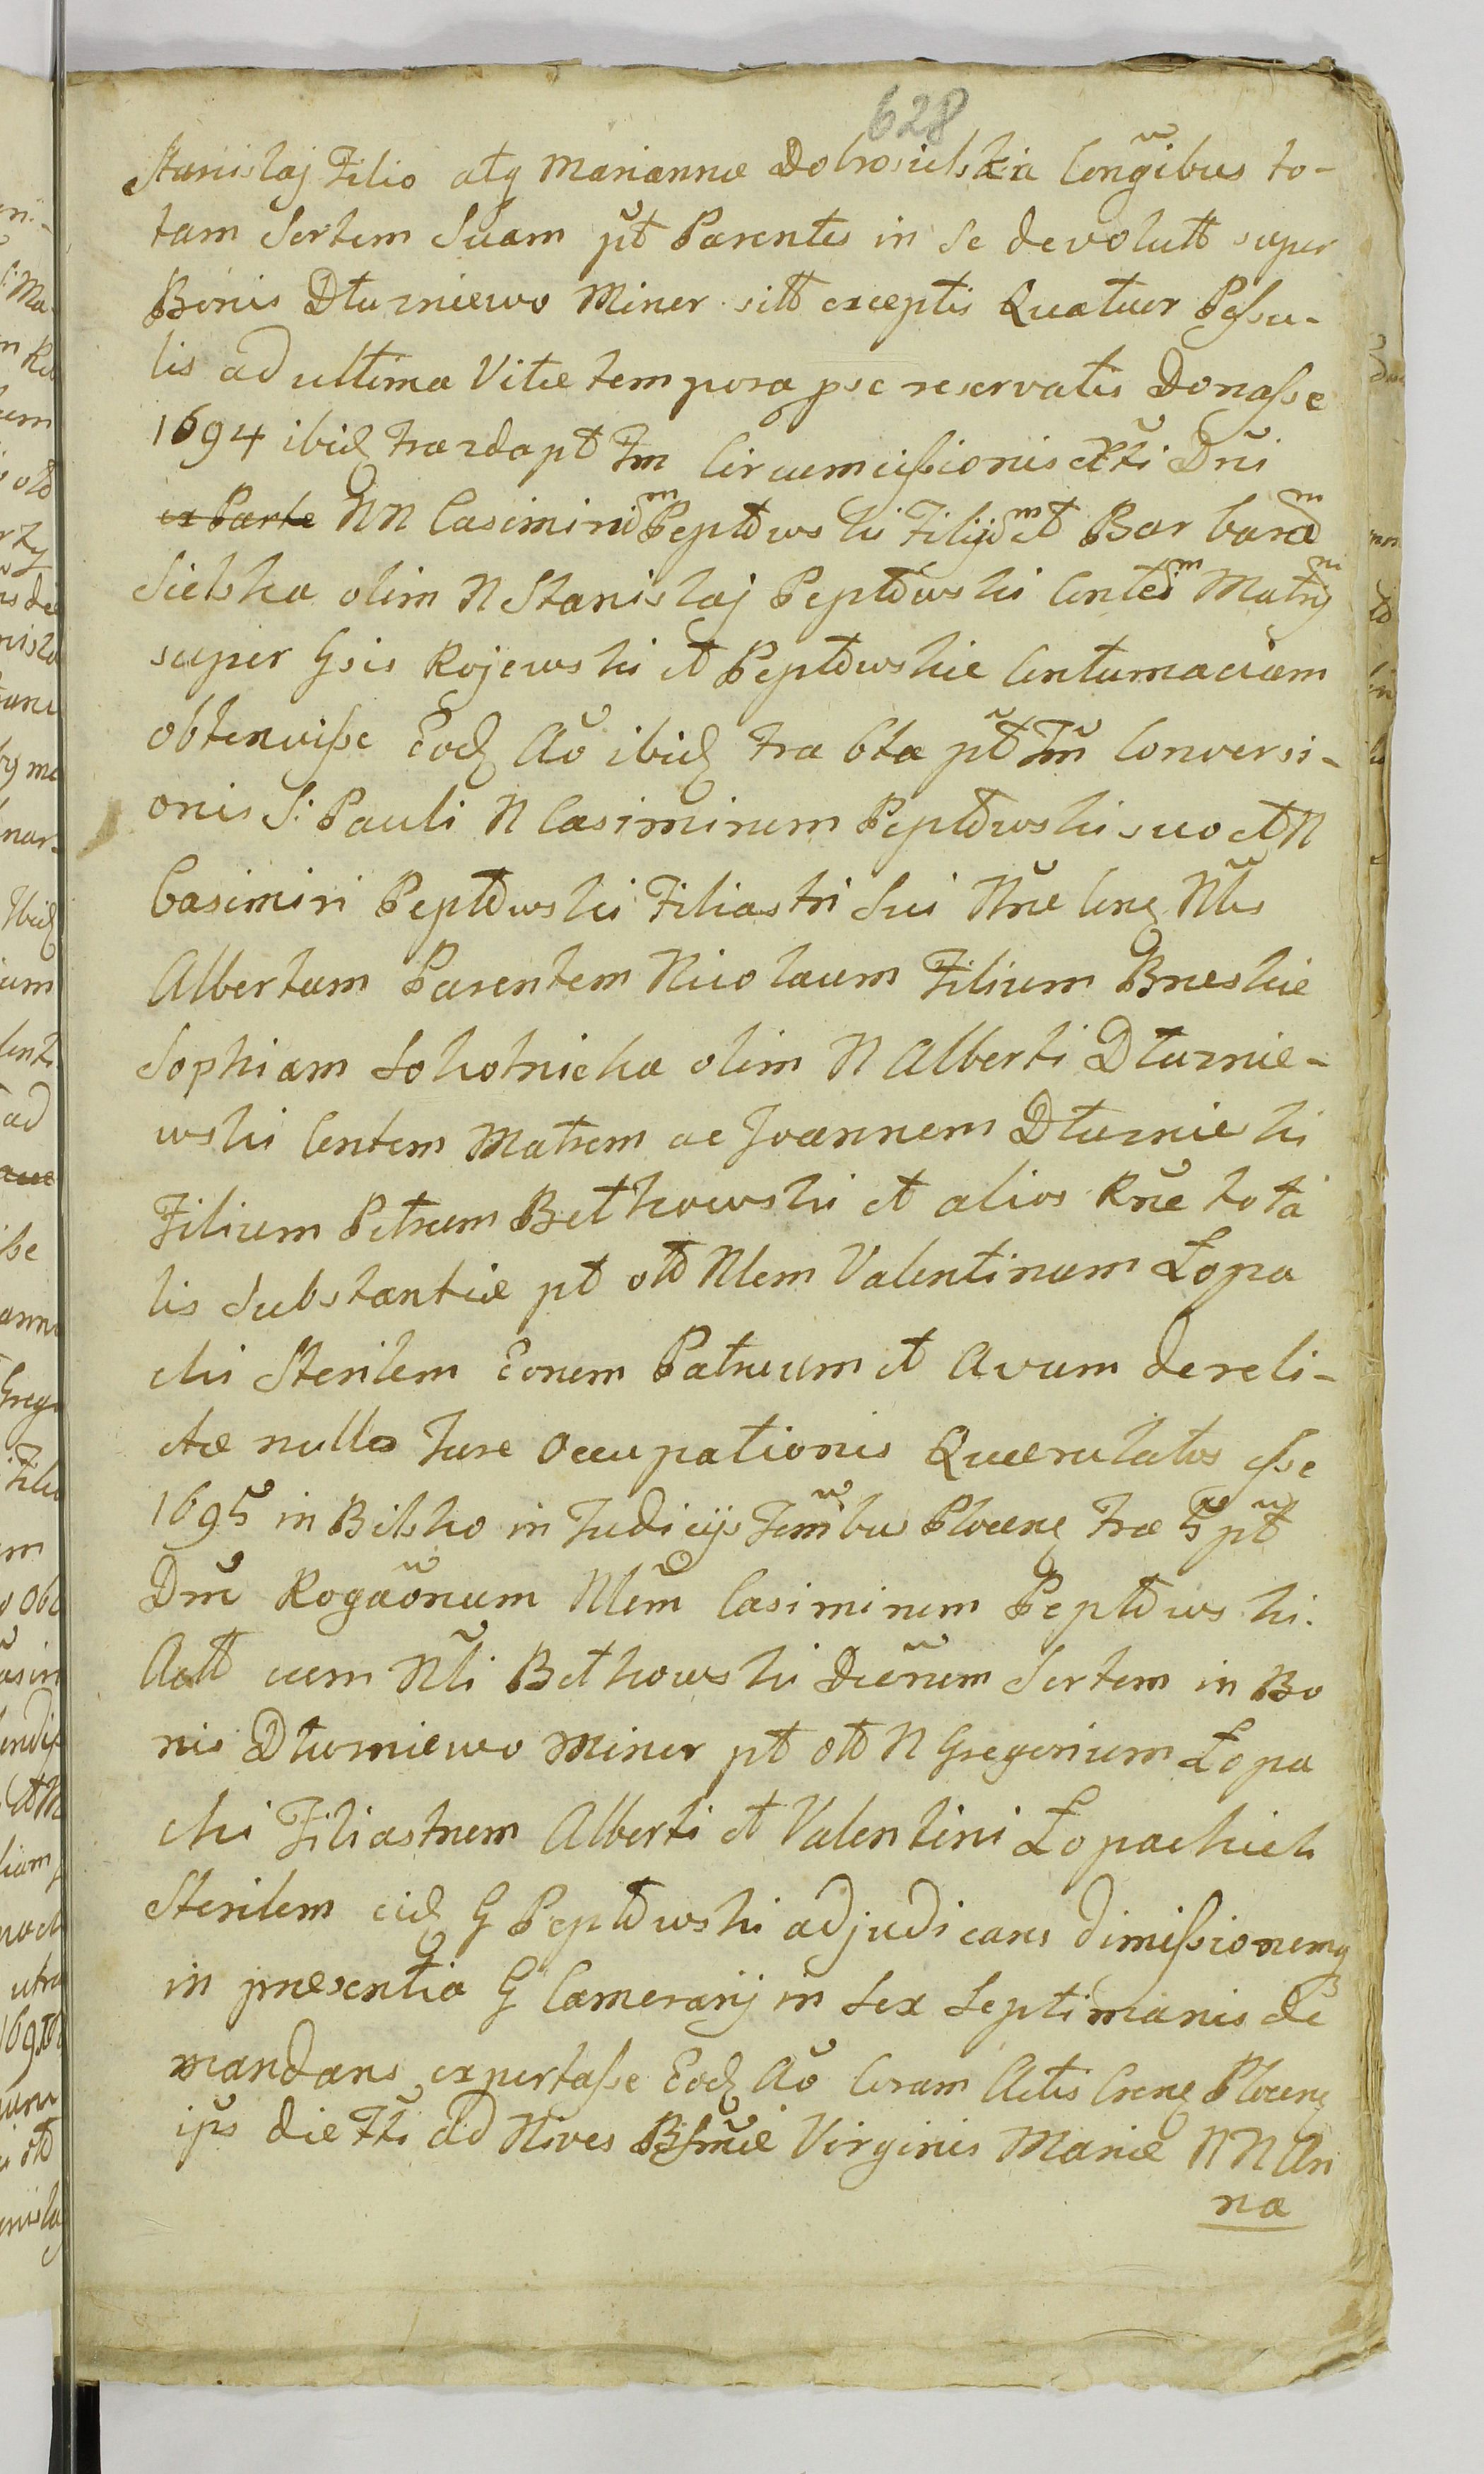 628
Stanislaj Filio atq Mariannæ Dobrosielska Congibus to-
tam Sortem Suam pt Parentes in Se devolutt super
Bonis Dłuzniewo Minor sitt exceptis Quatuor Pessu-
lis ad ultima Vitæ tempora p se reservatis Donasse
1694 ibid fra 2da pt Fm Circumcissionis Xti Dni
ex Parte NN Casimirum Pepłowski Filium et Barbaram
Sielska olim N Stanislaj Pepłowski Contem Matrem
super Gsis Kojewski et Pepłowskie Contumaciam
obtenuisse Eod Ao ibid fra 6ta pt Fm Conversi-
onis S: Pauli N Casimirum Pepłowski suo et N
Casimiri Pepłowski Filiastri Sui Nne Cong Nles
Albertum Parentem Nicolaum Filium Brieskie
Sophiam Sokolnicka olim N Alberti Dłuznie-
wski Contem Matrem ac Joannem Dłuznieski
Filium Petrum Betkowski et alios Rne tota
lis Substantiæ pt olb Nlem Valentinum Łopa
cki Sterilem Eorum Patruum et Avum dereli-
ctæ nullo Jure Occupationis Quærulatos esse
1695 in Bielsko in Judicijs Femibus Plocen fra 5 pt
Dm Rogaonum Nlem Casimirum Pepłowski.
Actt cum Nli Betkowski Decnum Sortem in Bo
nis Dłuzniewo Minor pt olb N Gregorium Łopa
cki Filiastrum Alberti et Valentini Łopackich
Sterilem eid G Pepłowski adjudicans dimissionemq
in præsentia G Camerarij in Sex Septimanis de
mandans exportasse Eod Ao Coram Actis Cren Plocen
ips die Fti ad Nives Bssmæ Virginis Mariæ NN An
na